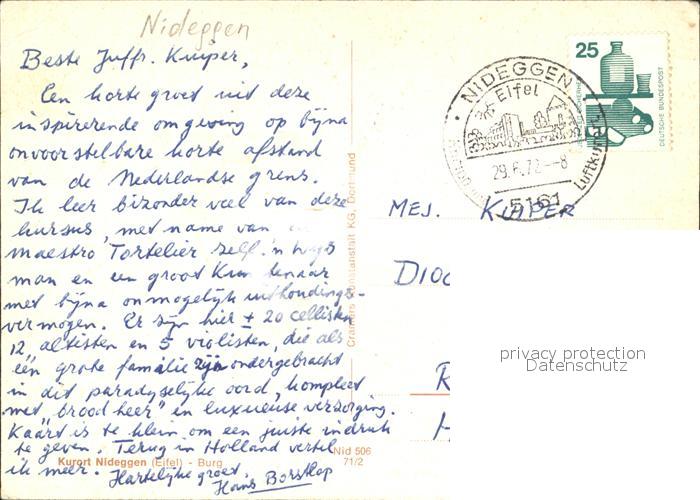 Nideggen
Beste Juffr. Kuiper,
Een korte groet uit deze
inspirerende omgeving op bijna
onvoorstelbare korte afstand
van de Nederlandse grens.
Ik leer bizonder veel van deze
kursus, met name van
maestro Tortelier zelf. 'n wijs
man en een groot Kunstenaar
met bijna onmogelijk uithoudings-
vermogen. Er zijn hier ± 20 cellisten
12, altisten en 5 violisten, die als
één grote familie zijn ondergebracht
in dit paradyselijke oord, kompleet
met "brood heer" en luxueuse verzorging.
Kaart is te klein om een juiste indruk
te geven. Terug in Holland vertel
ik meer. Hartelijke groet,
Hans Borstlap
Kurort Nideggen (Eifel) - Burg
Nid 506
71/2
Cramers Kunstanstalt KG, Dortmund
25
DEUTSCHE BUNDESPOST
NIDEGGEN
Eifel
29.6.72--8
Luftkurort
5161
MEJ. KUIPER
DIOC
R
H
privacy protection
Datenschutz